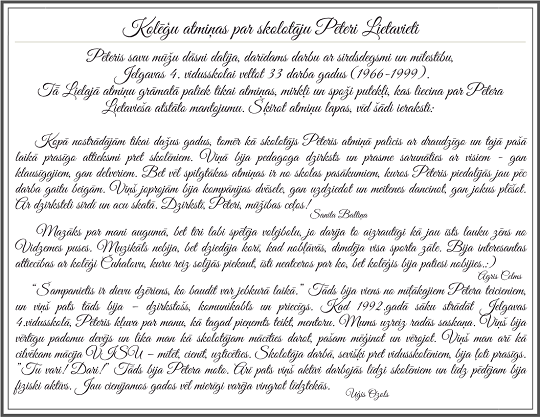 Kolēģu atmiņas par skolotāju Pēteri Lietavieti
Pēteris savu mūžu dāsni dalīja, darīdams darbu ar sirdsdegsmi un mīlestību,
Jelgavas 4. vidusskolai veltot 33 darba gadus (1966-1999).
Tā Lielajā atmiņu grāmatā paliek tikai atmiņas, mirkļi un spoži putekļi, kas liecina par Pētera
Lietavieša atstāto mantojumu. Šķirot atmiņu lapas, vid šādi ieraksti:
Kopā nostrādājām tikai dažus gadus, tomēr kā skolotājs Pēteris atmiņā palicis ar draudzīgo un tajā pašā
laikā prasīgo attieksmi pret skolēniem. Viņā bija pedagoga dzirksts un prasme sarunāties ar visiem - gan
klausīgajiem, gan delveriem. Bet vēl spilgtākas atmiņas ir no skolas pasākumiem, kuros Pēteris piedalījās jau pēc
darba gaitu beigām. Viņš joprojām bija kompānijas dvēsele, gan uzdziedot un meitenes dancinot, gan jokus plēšot.
Ar dzirksteli sirdī un acu skatā. Dzirksti, Pēteri, mūžības ceļos!
Sanda Boltiņa
Mazāks par mani augumā, bet tīri labi spēlēja volejbolu, jo darīja to aizrautīgi kā jau īsts lauku zēns no
Vidzemes puses. Muzikāls nebija, bet dziedāja korī, kad nobļāvās, dimdēja visa sporta zāle. Bija interesantas
attiecības ar kolēģi Čehalovu, kuru reiz solījās piekaut, īsti neatceros par ko, bet kolēģis bija patiesi nobijies.:)
Agris Celms
“Šampanietis ir dievu dzēriens, ko baudīt var jebkurā laikā.” Tāds bija viens no mīļākajiem Pētera teicieniem,
un viņš pats tāds bija – dzirkstošs, komunikabls un priecīgs. Kad 1992.gadā sāku strādāt Jelgavas
4.vidusskolā, Pēteris kļuva par manu, kā tagad pieņemts teikt, mentoru. Mums uzreiz radās saskaņa. Viņš bija
vērtīgu padomu devējs un lika man kā skolotājam mācīties darot, pašam mēģinot un vērojot. Viņš man arī kā
cilvēkam mācīja VISU – mīlēt, cienīt, uzticēties. Skolotāja darbā, sevišķi pret vidusskolēniem, bija ļoti prasīgs.
”Tu vari! Dari!” Tāds bija Pētera moto. Arī pats viņš aktīvi darbojās līdzi skolēniem un līdz pēdējam bija
fiziski aktīvs. Jau cienījamos gados vēl mierīgi varēja vingrot līdztekās.
Uģis Ozols